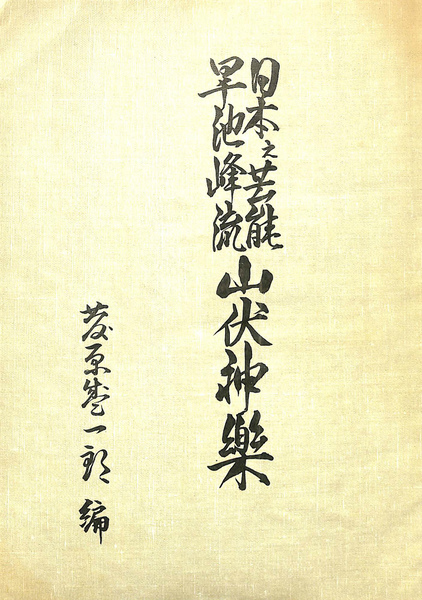 日本之芸能
早池峰流
山伏神樂
菅原盛一郎 編